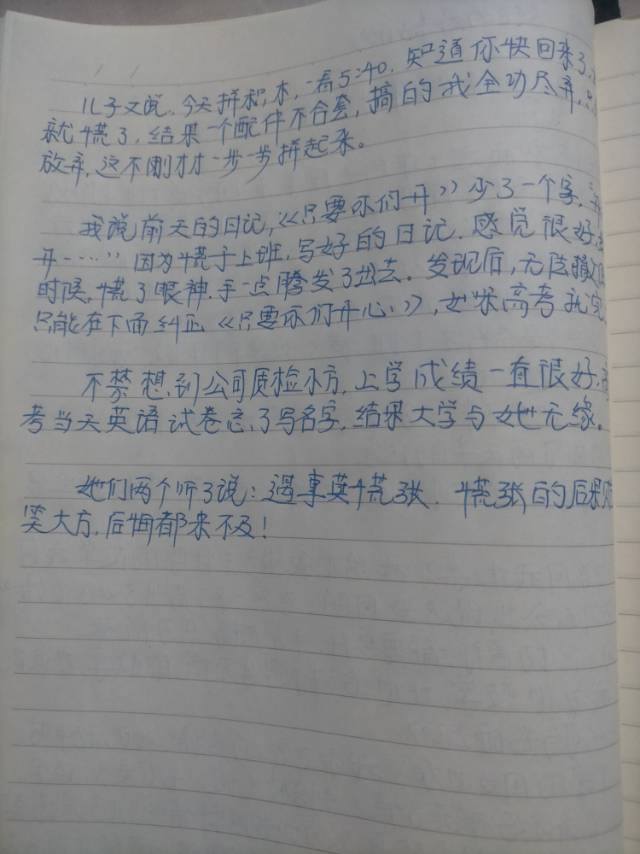 儿子又说，今天拼积木，一看5:40，知道你快回来了，
就慌了，结果一个配件不合套，搞的我全功尽弃，只
放弃，这不刚才才一步一步拼起来。
我说前天的日记，《只要你们开》少了一个字，
开……”因为慌于上班，写好的日记，感觉很好，
时候，慌了眼神，手一点腾发了出去。发现后，无法
只能在下面纠正《只要你们开心》，如啥高考
不禁想到公司质检小方，上学成绩一直很好，
考当天英语试卷忘了写名字，结果大学与她无缘。
她们两个听了说：遇事莫慌张，慌张的后果
笑大方，后悔都来不及！